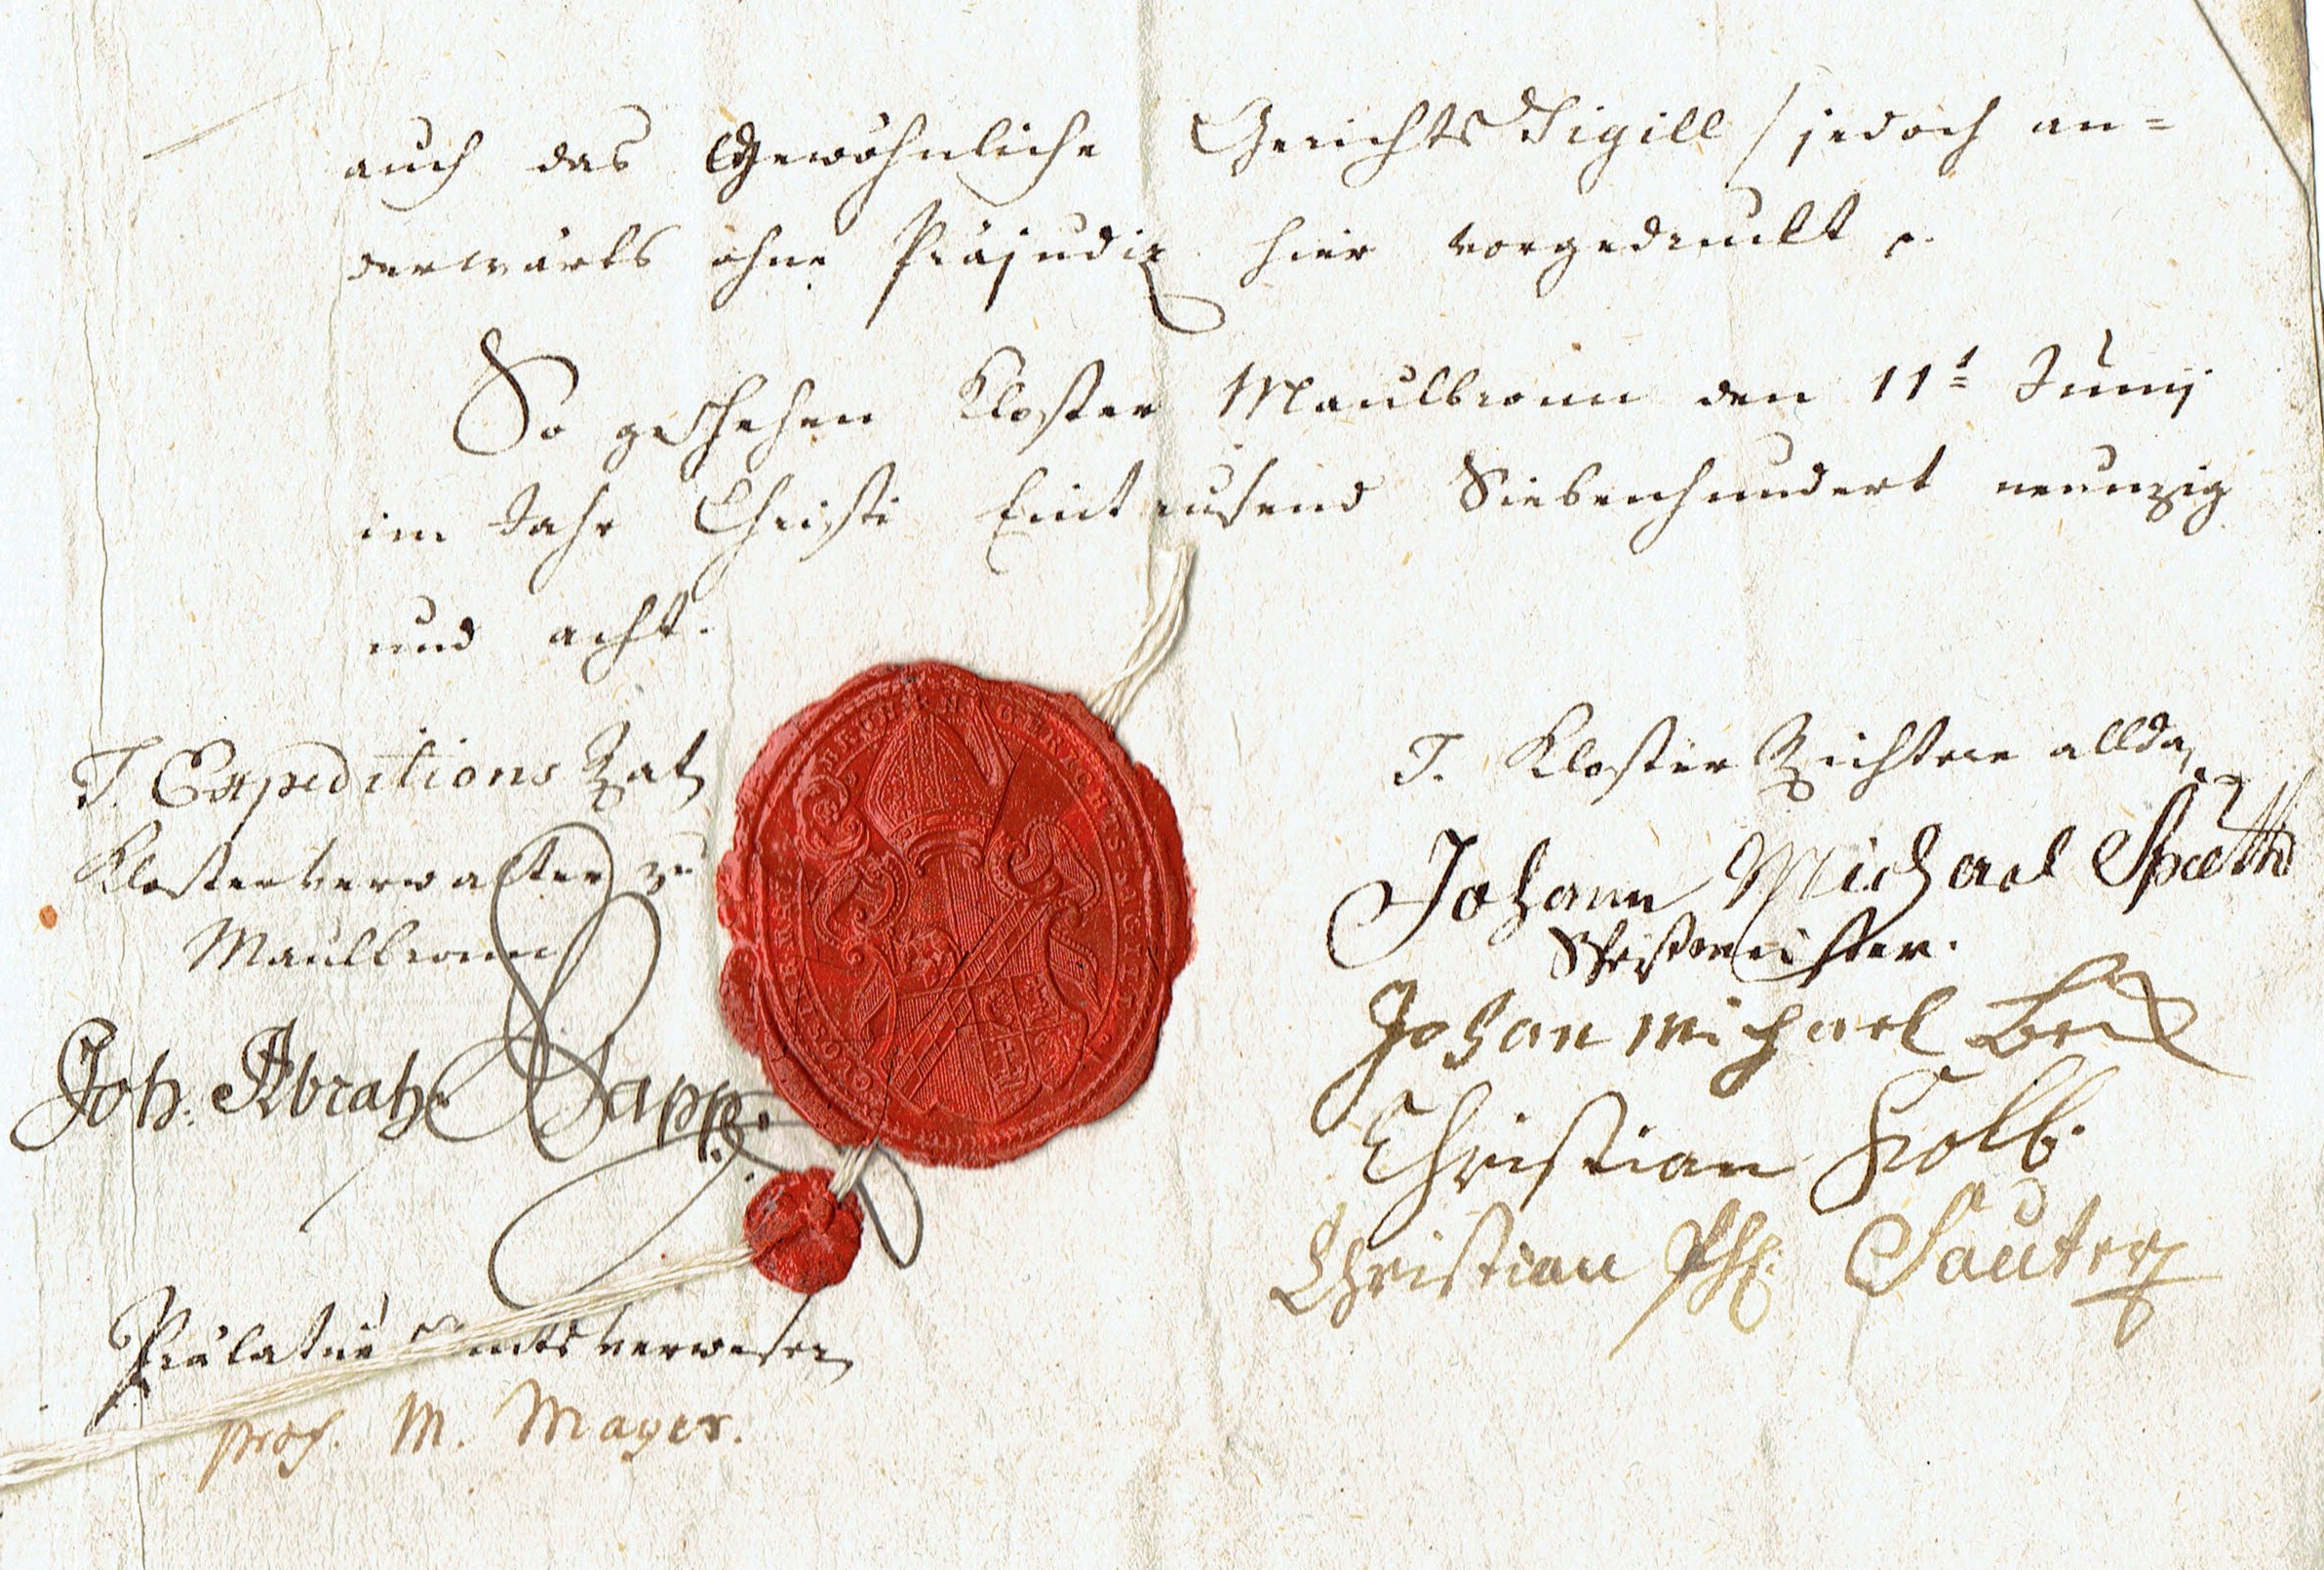 auch das Gewöhnliche Gerichts Sigill / jedoch an=
derwärts ohne Präjudiz hier vorgedruckt
So geschehen Kloster Maulbronn den 11t Junij
im Jahr Christi Eintausend Siebenhundert neunzig
und acht.
T. Expeditions Rat,
Klosterverwalter zu
Maulbronn
Joh: Abrah: Sapp.
Prälatur Amtsverweser,
prof. M. Mayer.
CLOSTER MAULBRONN GERICHTS
T. Kloster Richtere allda,
Johann Michael Späth
Speismeister.
Johan Michael
Christian Kolb.
Christian Ph: Sauter